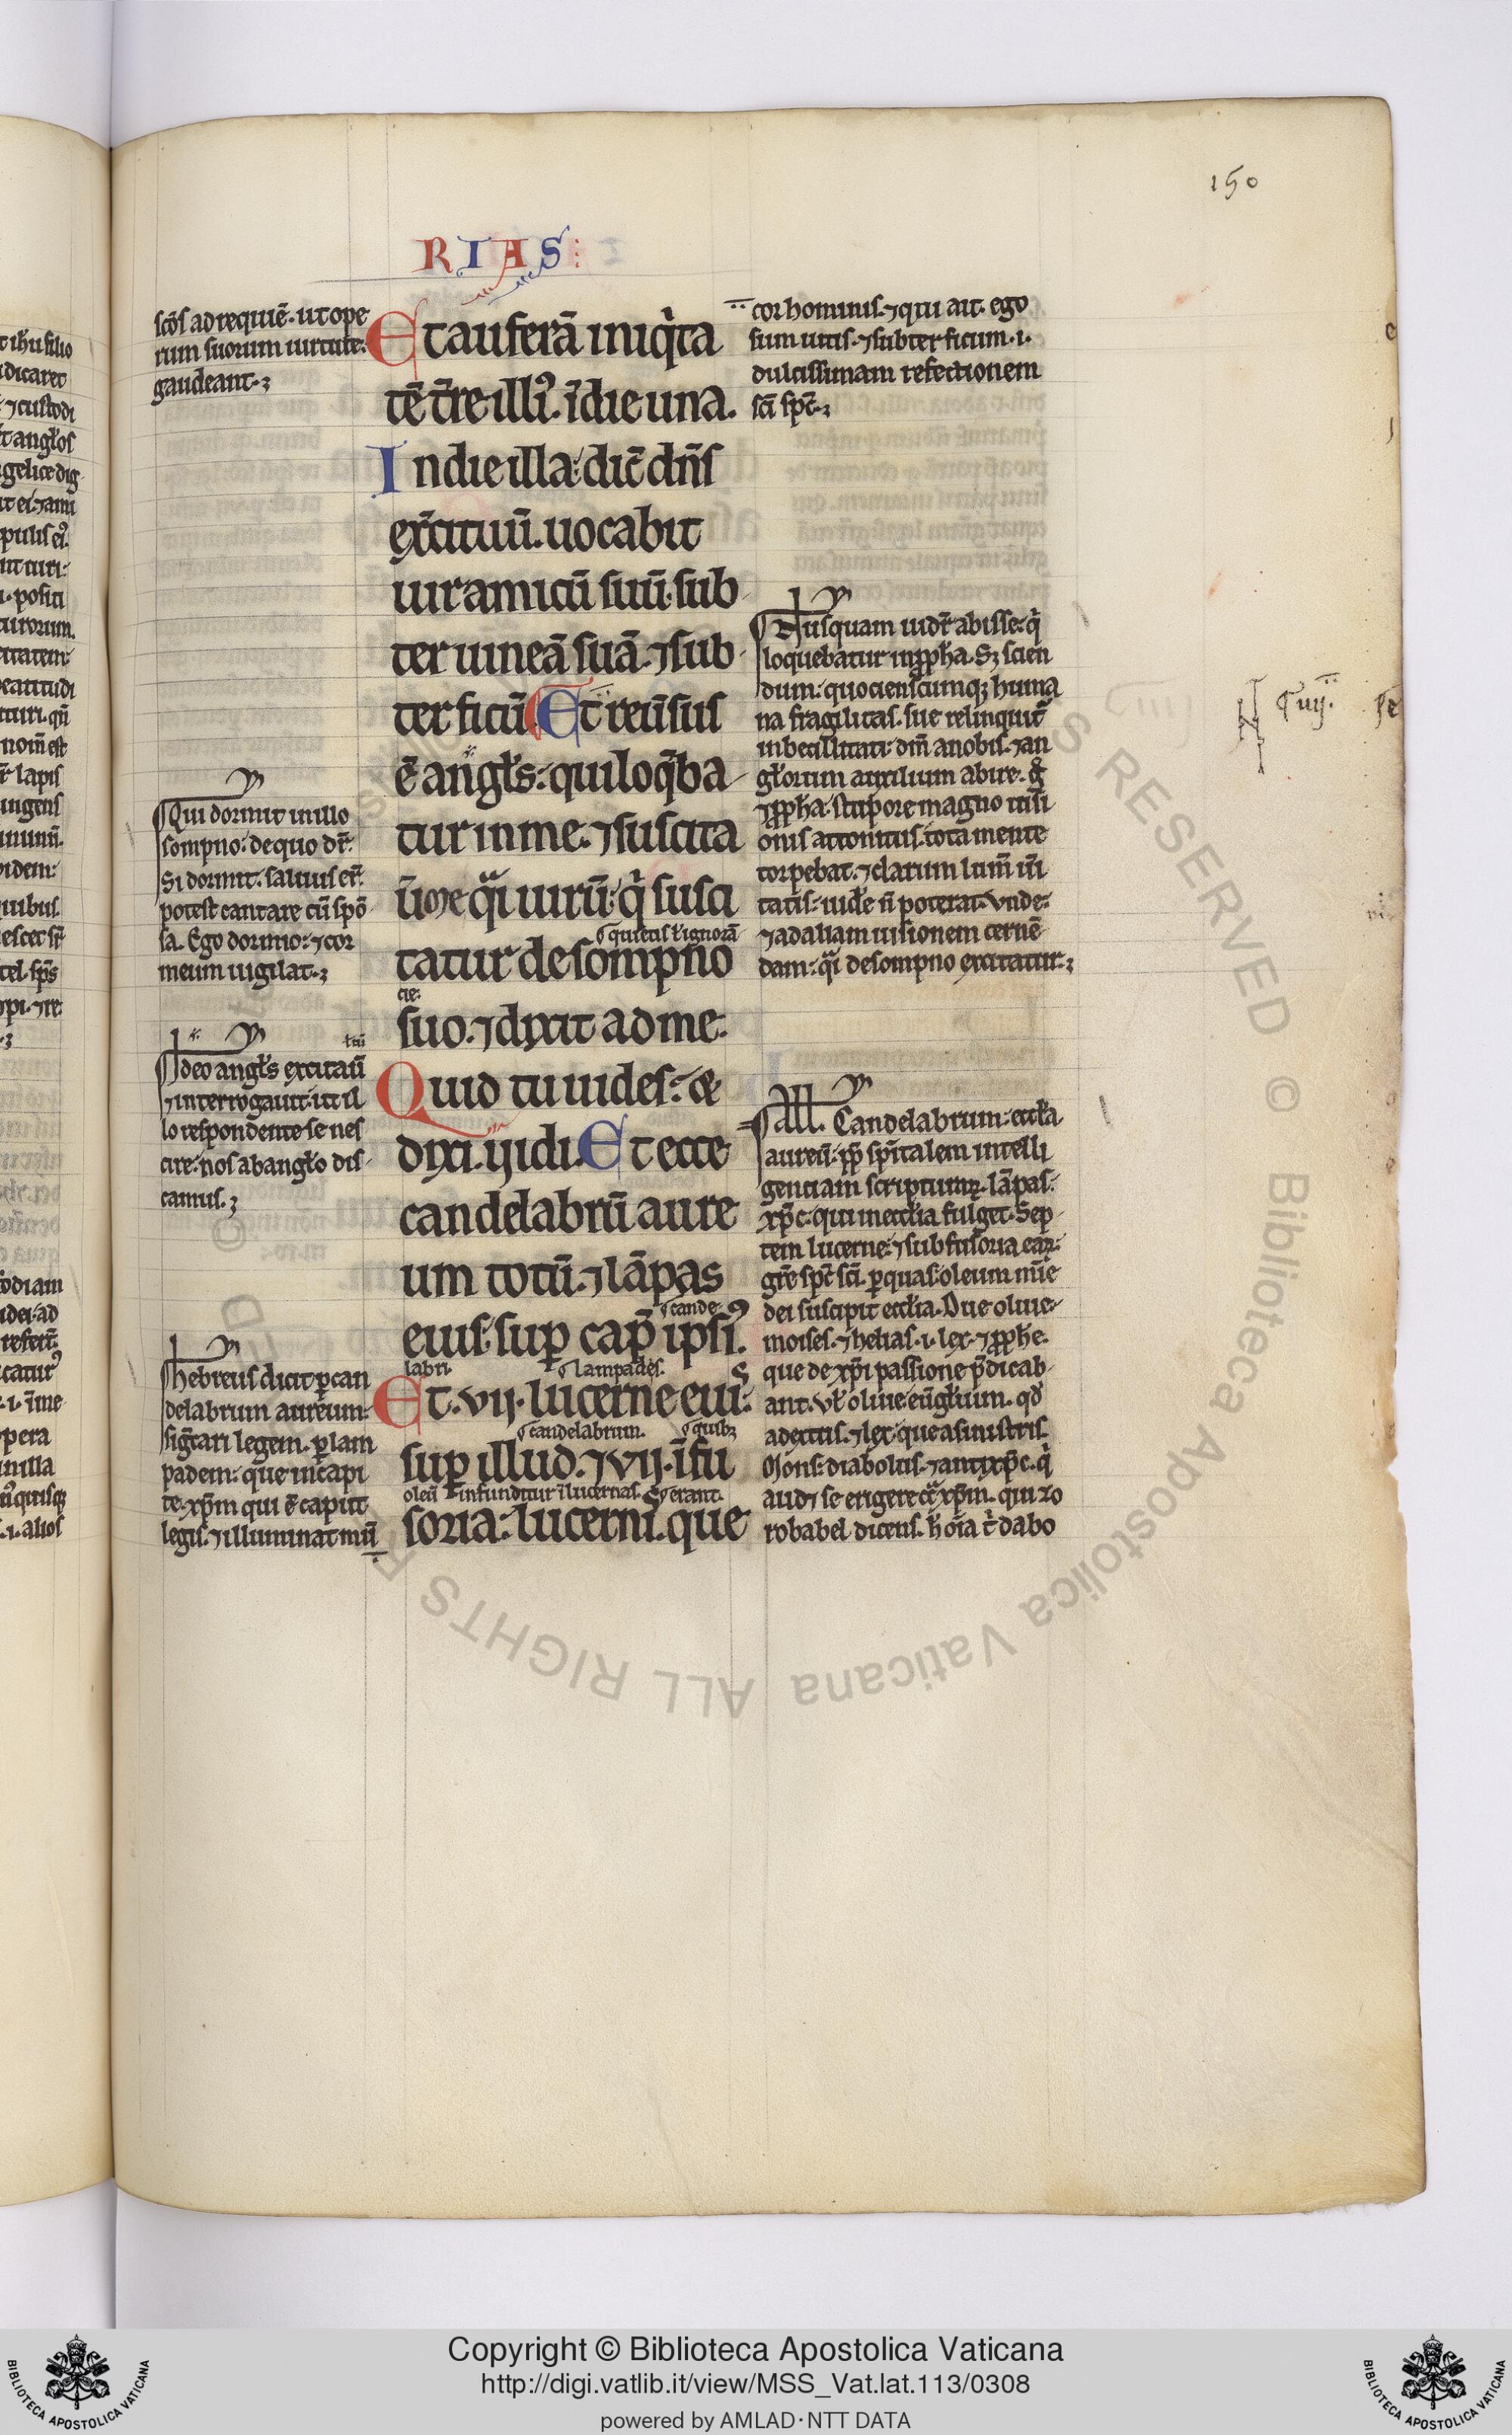 150
RIAS:
scōs ad requiē. ut ope
rum suorum uirtute:
gaudeant.
Qui dormit in illo
sompno: de quo dr̄.
Si dormit. saluus er̄.
potest cantare cū spō
sa. Ego dormio: ⁊ cor
meum uigilat.
Ideo angl̄s excitaū
⁊ interrogauit. ut il
lo respondente se nes
cire: nos ab angl̄o dis
camus.
Hebreus dicit ꝑ can
delabrum aureum:
siḡcari legem. ꝑ lam
padem: que in capi
te. xp̄m qui ē caput
legis. ⁊ illuminat mū
Et auferā iniq̇ta
tē t̄re illiꝰ. ī die una.
In die illa: dic̄ dn̄s
ex̄cituū. uocabit
uir amicū suū. sub
ter uineā suā. ⁊ sub
ter ficū Et reūsus
ē angl̄s: qui loq̄ba
tur in me. ⁊ suscita
ū me q̄i uirū: q̇ susci
quietis ł ignorā
tatur de sompno
cie:
suo. ⁊ dixit ad me.
Quid tu uides: &
dixi. Vidi. Et ecce
candelabrū aure
um totū. ⁊ lāpas
cande
eius. suꝑ cap̄ ipsiꝰ.
labri. lampades.
Et. vij. lucerne eiuꝰ:
candelabrum. quibꝫ
suꝑ illud. ⁊ vij. īfu
oleū infunditur ī lucernas. erant.
soria: lucerniˢ. que
cor hominis. ⁊ qui ait. ego
sum uitis. ⁊ subter ficum .i.
dulcissimam refectionem
sc̄i spc̄.
Nusquam uidr̄ abisse: q̇
loquebatur in ꝓph̄a. Sꝫ scien
dum: quocienscumqꝫ huma
na fragilitas. sue relinquit̄
inbecillitati: dm̄ a nobis. ⁊ an
gl̄orum auxilium abire. g̊
⁊ ꝓph̄a. stupore magno uisi
onis attonitus. tota mente
torpebat. ⁊ clarum lum̄ ūi
tatis: uidē n̄ poterat. Vnde:
⁊ ad aliam uisionem cernē
dam: q̄i de sompno excitatur.
All. Candelabrum: eccl̄a
aureū: ꝓꝑ sp̄italem intelli
gentiam scripturaꝝ. lāpas:
xp̄c. qui in eccl̄ia fulget. Sep
tem lucerne: ⁊ subfusoria eaꝝ:
gr̄e spc̄ sc̄i. ꝑ quas: oleum mīe
dei suscipit eccl̄ia. Due oliue:
moises. ⁊ helias .i. lex. ⁊ ꝓph̄e.
que de xp̄i passione p̄dicab
ant. Vł oliue: eūgl̄ium. qd̄
a dext̄is. ⁊ lex: que a sinistris.
Mons: diabolus. ⁊ antixp̄c. q̇
aud⁊ se erigere c̄ xp̄m. qui zo
robabel dicens. h̄ oīa t̄ dabo
Copyright © Biblioteca Apostolica Vaticana
http://digi.vatlib.it/view/MSS_Vat.lat.113/0308
powered by AMLAD·NTT DATA
BIBLIOTECA APOSTOLICA VATICANA
BIBLIOTECA APOSTOLICA VATICANA
© Biblioteca Apostolica Vaticana ALL RIGHTS RESERVED